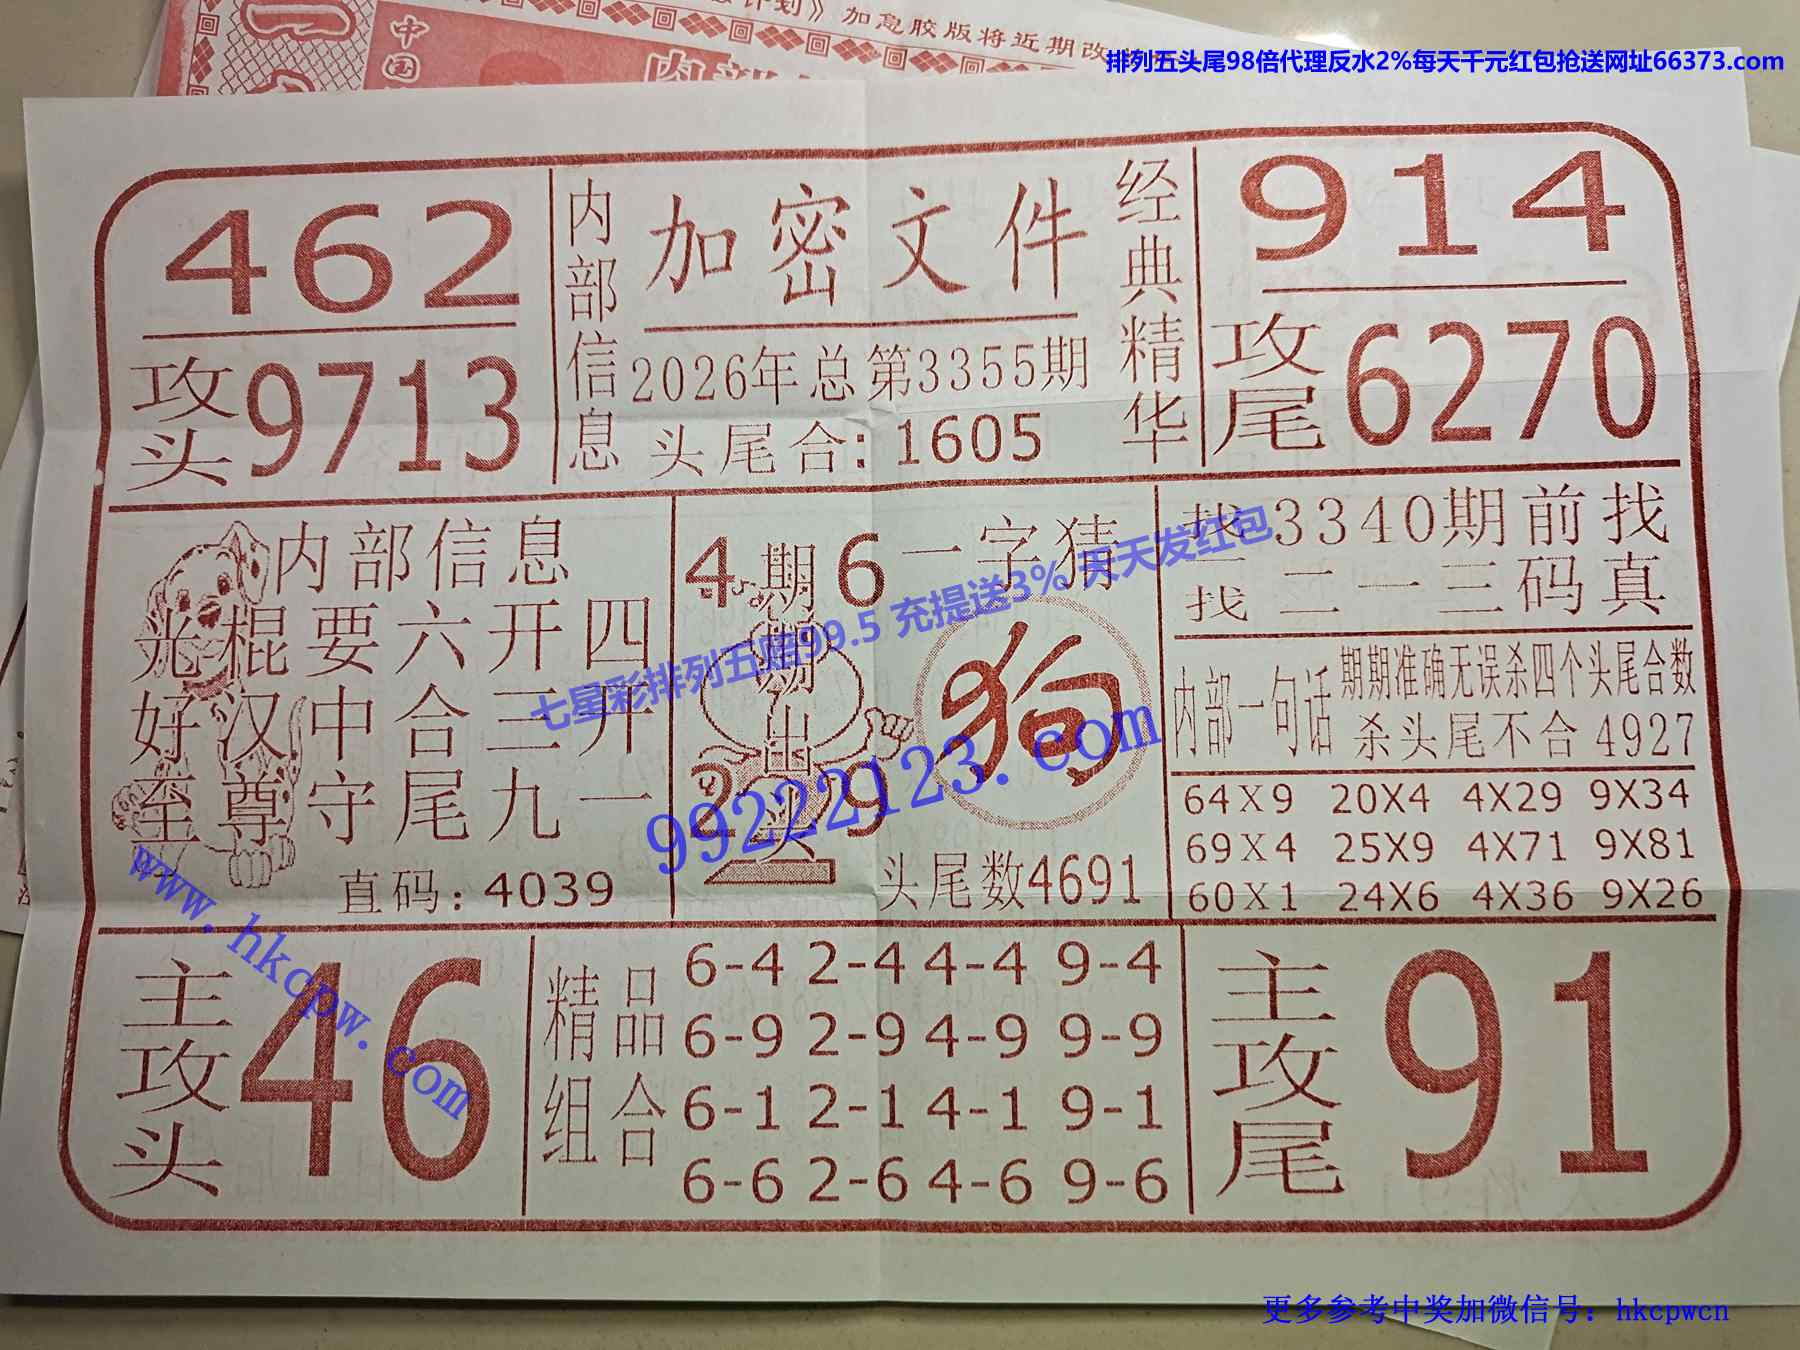 计划》加急胶版将近期改
排列五头尾98倍代理反水2%每天千元红包抢送网址66373.com
中国
462
攻头9713
内部信息
加密文件
2026年总第3355期
头尾合:1605
经典精华
914
攻尾6270
内部信息
光棍要六开四
好汉中合三开
至尊守尾九一
直码:4039
4期6
期
出
2头9
一字猜
狗
头尾数4691
找3340期前找
找二一三码真
内部一句话
期期准确无误杀四个头尾合数
杀头尾不合4927
64X9 20X4 4X29 9X34
69X4 25X9 4X71 9X81
60X1 24X6 4X36 9X26
七星彩排列五赔99.5 充提送3% 天天发红包
99222123.com
www.hkcpw.com
主攻头46
精品组合
6-4 2-4 4-4 9-4
6-9 2-9 4-9 9-9
6-1 2-1 4-1 9-1
6-6 2-6 4-6 9-6
主攻尾91
更多参考中奖加微信号:hkcpwcn